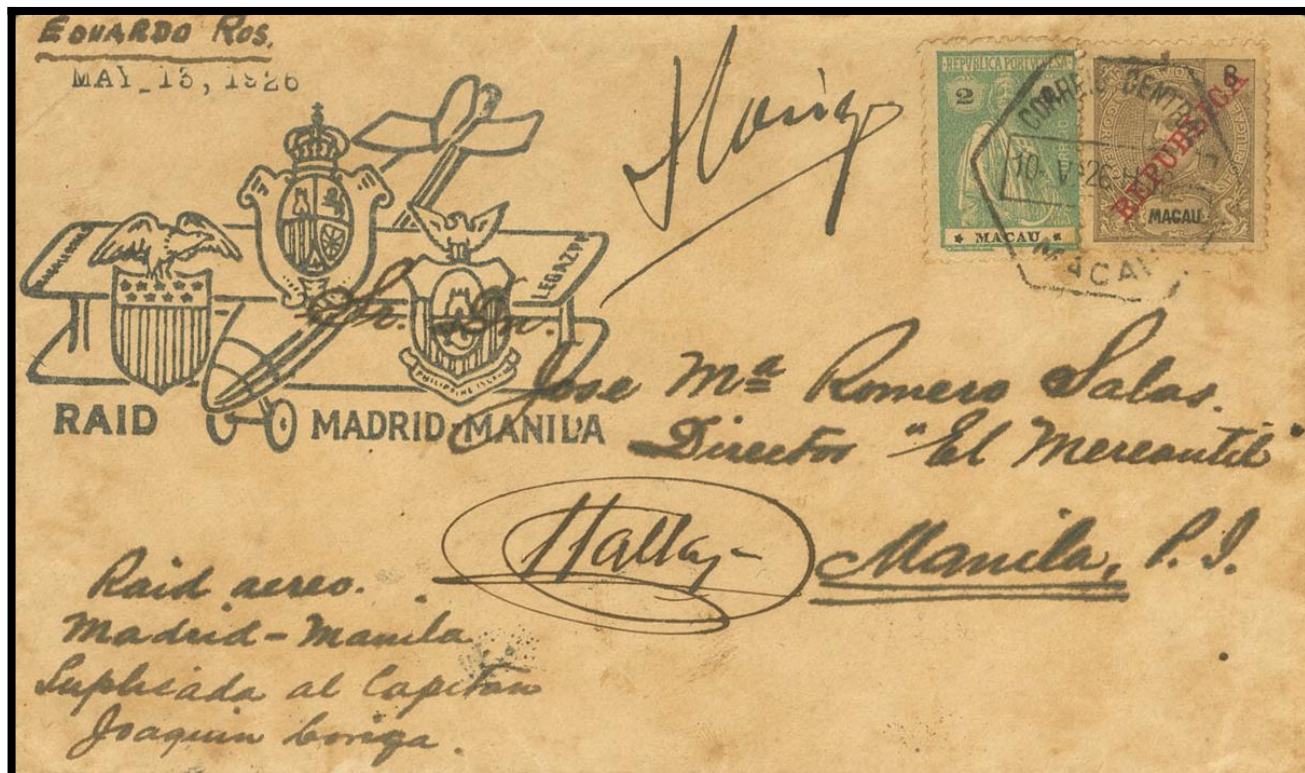 EDUARDO ROS.
MAY 13, 1926
REPVBLICA PORTVGVESA
2
MACAU
8
REPUBLICA
MACAU
CORREIO CENTRAL
10- V 26
MACAU
LEGAZPI
PHILIPPINE ISLANDS
RAID MADRID-MANILA
Sr. Dn.
Jose Mª Romero Salas.
Director "El Mercantil"
Manila, P.I.
Raid aereo.
Madrid-Manila
Suplicada al Capitan
Joaquin Loriga.